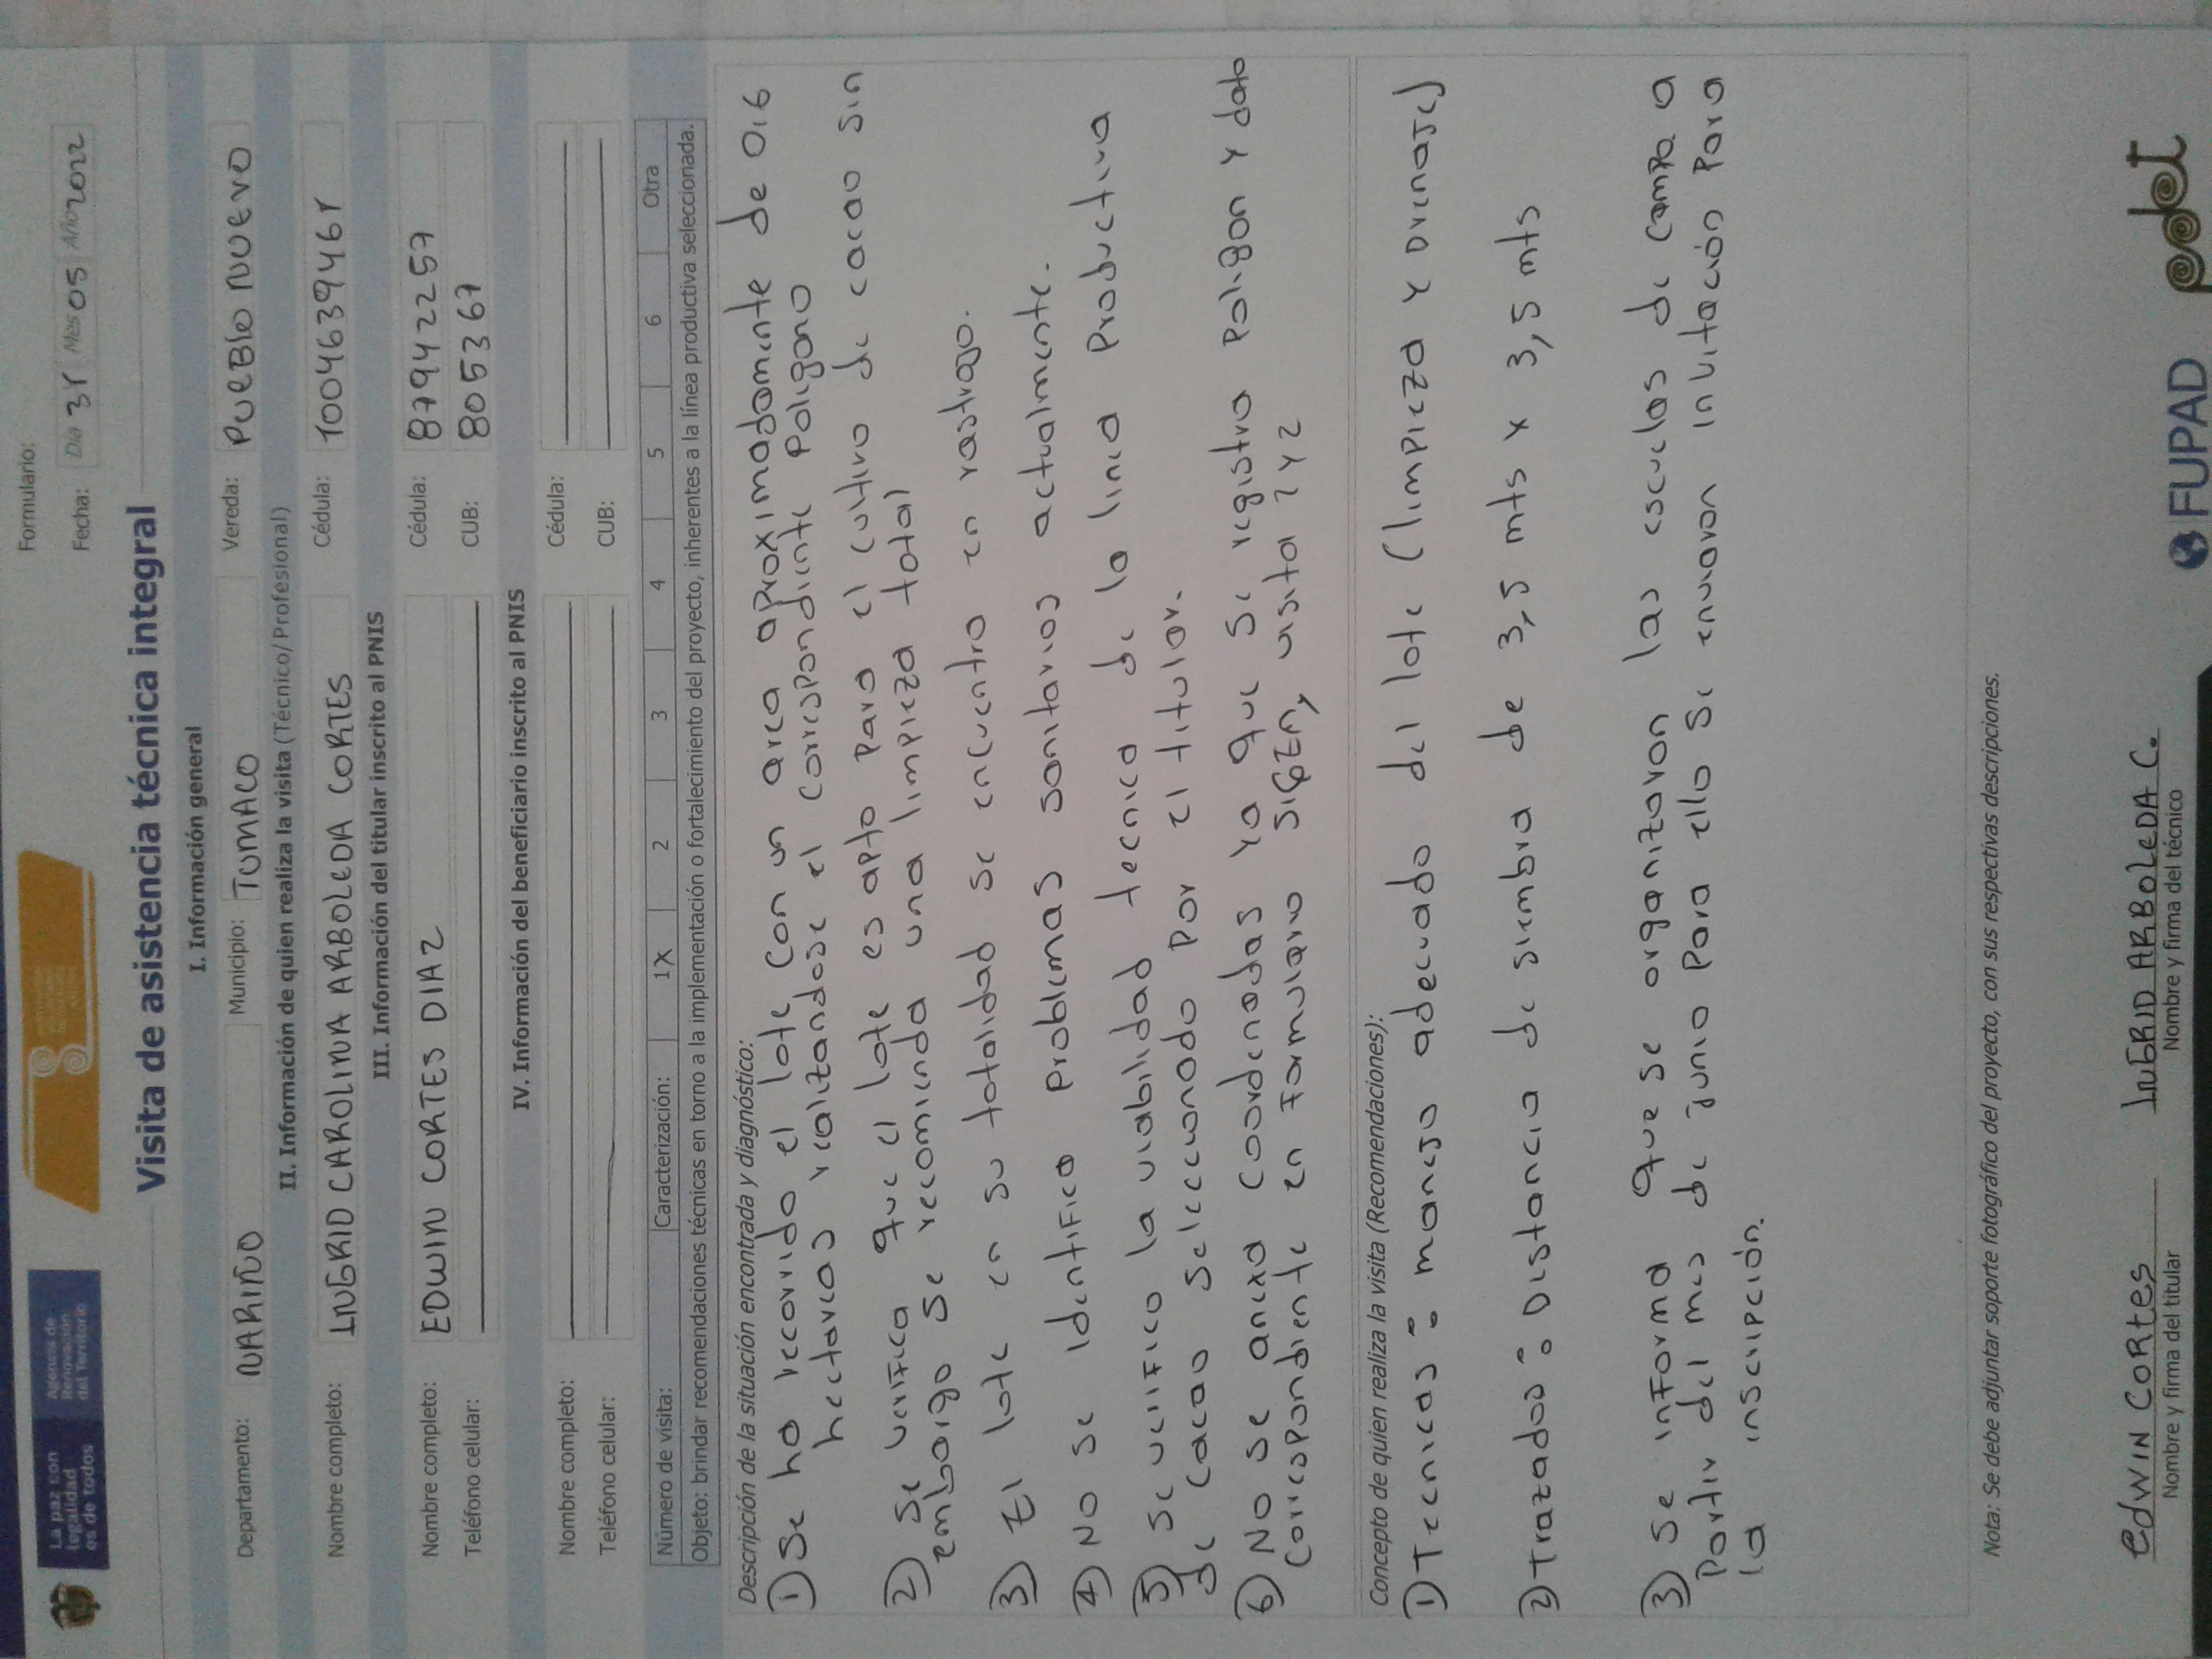 La paz con
legalidad
es de todos
Agencia de
Renovación
del Territorio
Formulario:
Fecha: Día 31 Mes 05 Año 2022
Visita de asistencia técnica integral
I. Información general
Departamento: NARIÑO Municipio: TUMACO Vereda: PUEBlo NUEVO
II. Información de quien realiza la visita (Técnico/Profesional)
Nombre completo: INGRID CAROLINA ARBOLEDA CORTES Cédula: 1004639461
III. Información del titular inscrito al PNIS
Nombre completo: EDWIN CORTES DIAZ Cédula: 87942257
Teléfono celular: CUB: 805367
IV. Información del beneficiario inscrito al PNIS
Nombre completo: Cédula:
Teléfono celular: CUB:
Número de visita: Caracterización: 1X 2 3 4 5 6 Otra
Objeto: brindar recomendaciones técnicas en torno a la implementación o fortalecimiento del proyecto, inherentes a la línea productiva seleccionada.
Descripción de la situación encontrada y diagnóstico:
1) Se ha recorrido el lote con un area aproximadamente de 0,6
hectareas realizandose el correspondiente Poligono
2) Se verifica que el lote es apto para el cultivo de cacao sin
embargo se recomienda una limpieza total
3) El lote en su totalidad se encuentra en rastrojo.
4) No se identifico problemas sanitarios actualmente.
5) Se verifico la viabilidad tecnica de la linea Productiva
de cacao seleccionado por el titular.
6) No se anexa coordenadas ya que se registra Poligon y dato
correspondiente en formulario SIGEN, visita 1 y 2
Concepto de quien realiza la visita (Recomendaciones):
1) Tecnicas: manejo adecuado del lote (limpieza y Drenajes)
2) Trazados: Distancia de siembra de 3,5 mts x 3,5 mts
3) Se informa que se organizaron las escuelas de campo a
Partir del mes de junio Para ello Se enviaron invitación Para
la inscripción.
Nota: Se debe adjuntar soporte fotográfico del proyecto, con sus respectivas descripciones.
EDWIN CORtES
Nombre y firma del titular
INGRID ARBOLEDA C.
Nombre y firma del técnico
FUPAD
pdet